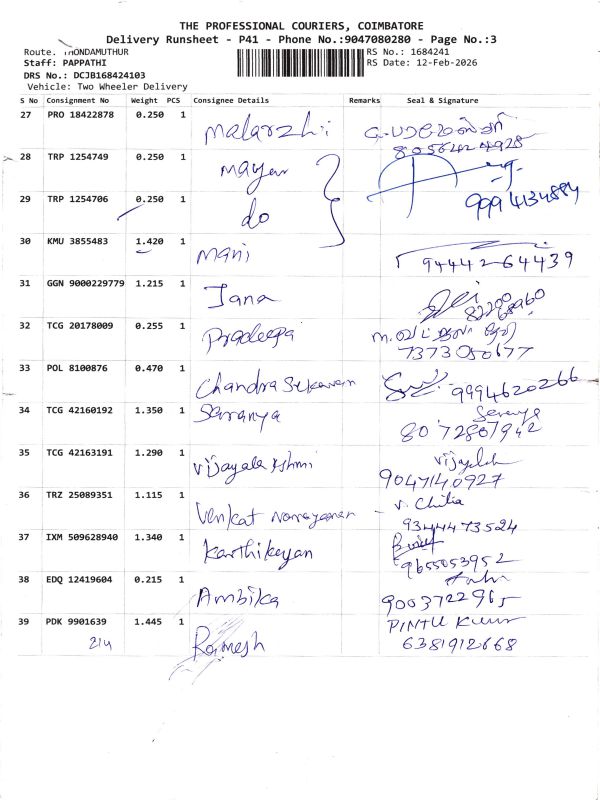 THE PROFESSIONAL COURIERS, COIMBATORE
Delivery Runsheet - P41 - Phone No.:9047080280 - Page No.:3
Route. THONDAMUTHUR RS No.: 1684241
Staff: PAPPATHI RS Date: 12-Feb-2026
DRS No.: DCJB168424103
Vehicle: Two Wheeler Delivery
S No Consignment No Weight PCS Consignee Details Remarks Seal & Signature
27 PRO 18422878 0.250 1 Malarzhi
28 TRP 1254749 0.250 1 Mayan
29 TRP 1254706 0.250 1 do
9994134884
30 KMU 3855483 1.420 1 Mani 9444264439
31 GGN 9000229779 1.215 1 Jana
32 TCG 20178009 0.255 1 Pradeepa
7373050677
33 POL 8100876 0.470 1 Chandra Sekaran 9994620266
34 TCG 42160192 1.350 1 Saranya Saranya
8072807942
35 TCG 42163191 1.290 1 Vijayalakshmi
9047140927
36 TRZ 25089351 1.115 1 Venkat Narayanan
9344473524
37 IXM 509628940 1.340 1 Karthikeyan
9655053952
38 EDQ 12419604 0.215 1 Ambika
9003722965
39 PDK 9901639 1.445 1 Ramesh PINTU Kumar
214 6381912668